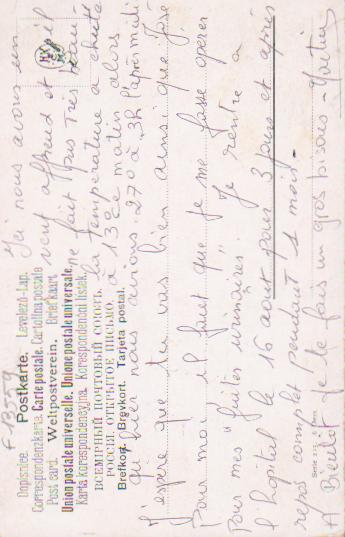 F-13559
Dopisnice. Postkarte. Levelező-Lap.
Correspondenzkarte. Carte postale. Cartolina postale
Post card. Weltpostverein. Brief kaart
Union postale universelle. Unione postale universale.
Karta korespondencyjna. Korespondenční lístek.
ВСЕМІРНЫЙ ПОЧТОВЫЙ СОЮЗЪ.
РОССІЯ. ОТКРЫТОЕ ПИСЬМО.
Brefkort. Brevkort. Tarjeta postal.
Ici nous avons un
vent affreux et il
ne fait pas très beau
la température a chuté
à 13° ce matin alors
qu'hier nous avions 27° à 3h l'après midi
J'espère que tu vas bien ainsi que José
Pour moi il faut que je me fasse opérer
pour mes "fuites urinaires". Je rentre a
l'hôpital le 16 aout pour 3 jours et après
repos complet pendant 1 mois -
A Bientôt je te fais un gros bisous -
Serie